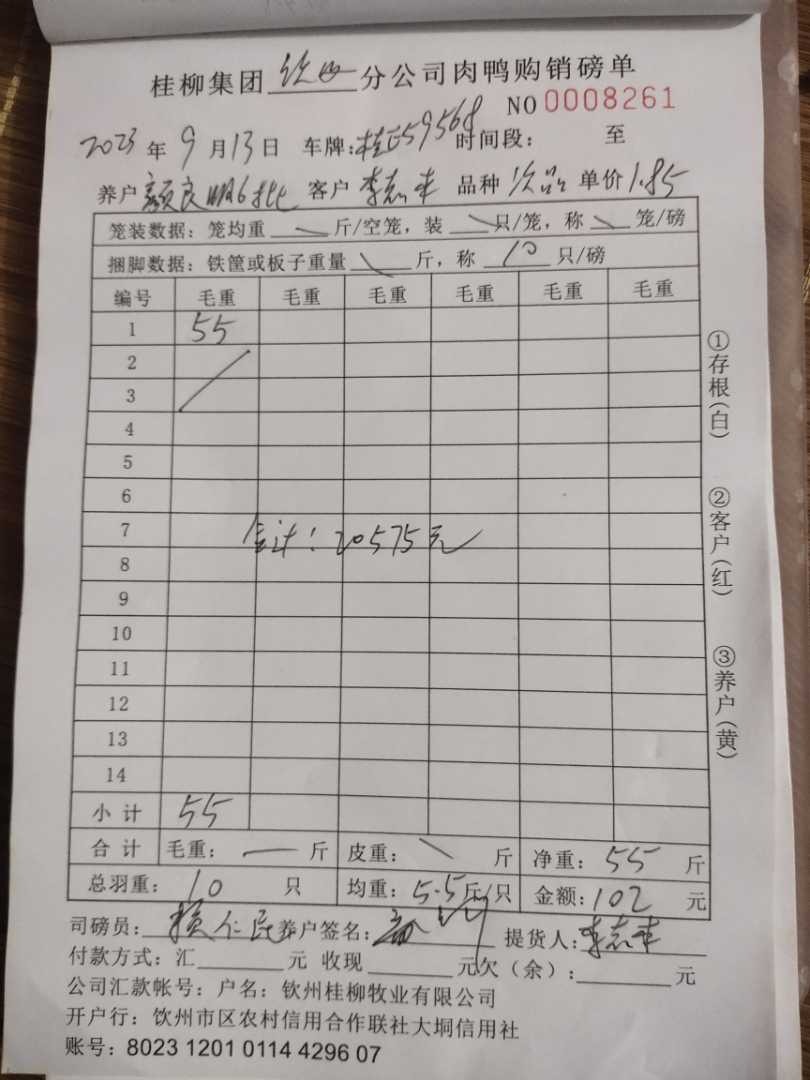 桂柳集团 钦州 分公司肉鸭购销磅单
NO 0008261
2023 年 9 月 13 日 车牌: 桂E59568 时间段: 至
养户 良明6批 客户 李志丰 品种 次品 单价 1.85
笼装数据: 笼均重 斤/空笼, 装 只/笼, 称 笼/磅
捆脚数据: 铁筐或板子重量 斤, 称 10 只/磅
编号 毛重 毛重 毛重 毛重 毛重 毛重
1 55
2
3
4
5
6
7
合计: 20575元
8
9
10
11
12
13
14
小计 55
合计 毛重: 一 斤 皮重: 斤 净重: 55 斤
总羽重: 10 只 均重: 5.5 斤/只 金额: 102 元
司磅员: 仁民 养户签名: 提货人: 李志丰
付款方式: 汇 元 收现 元欠(余): 元
公司汇款帐号: 户名: 钦州桂柳牧业有限公司
开户行: 钦州市区农村信用合作联社大垌信用社
账号: 8023 1201 0114 4296 07
①存根(白)
②客户(红)
③养户(黄)